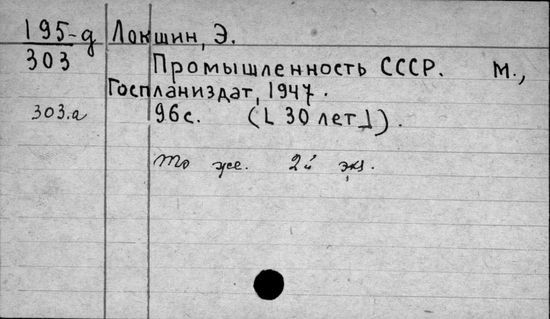 195-д Локшин, Э.
303 Промышленность СССР. М.,
Госпланиздат, 1947.
303.а 96с. (L 30 лет ⅃).
То же. 2й экз.